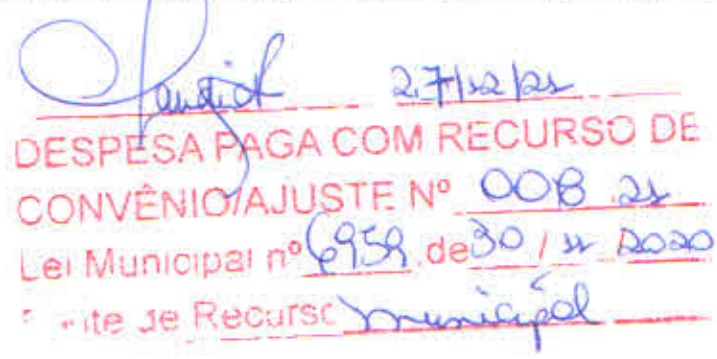 27/12/21
DESPESA PAGA COM RECURSO DE
CONVÊNIO/AJUSTE Nº 008 21
Lei Municipal nº 6959 de 30 / 11 2020
te de Recurso municipal